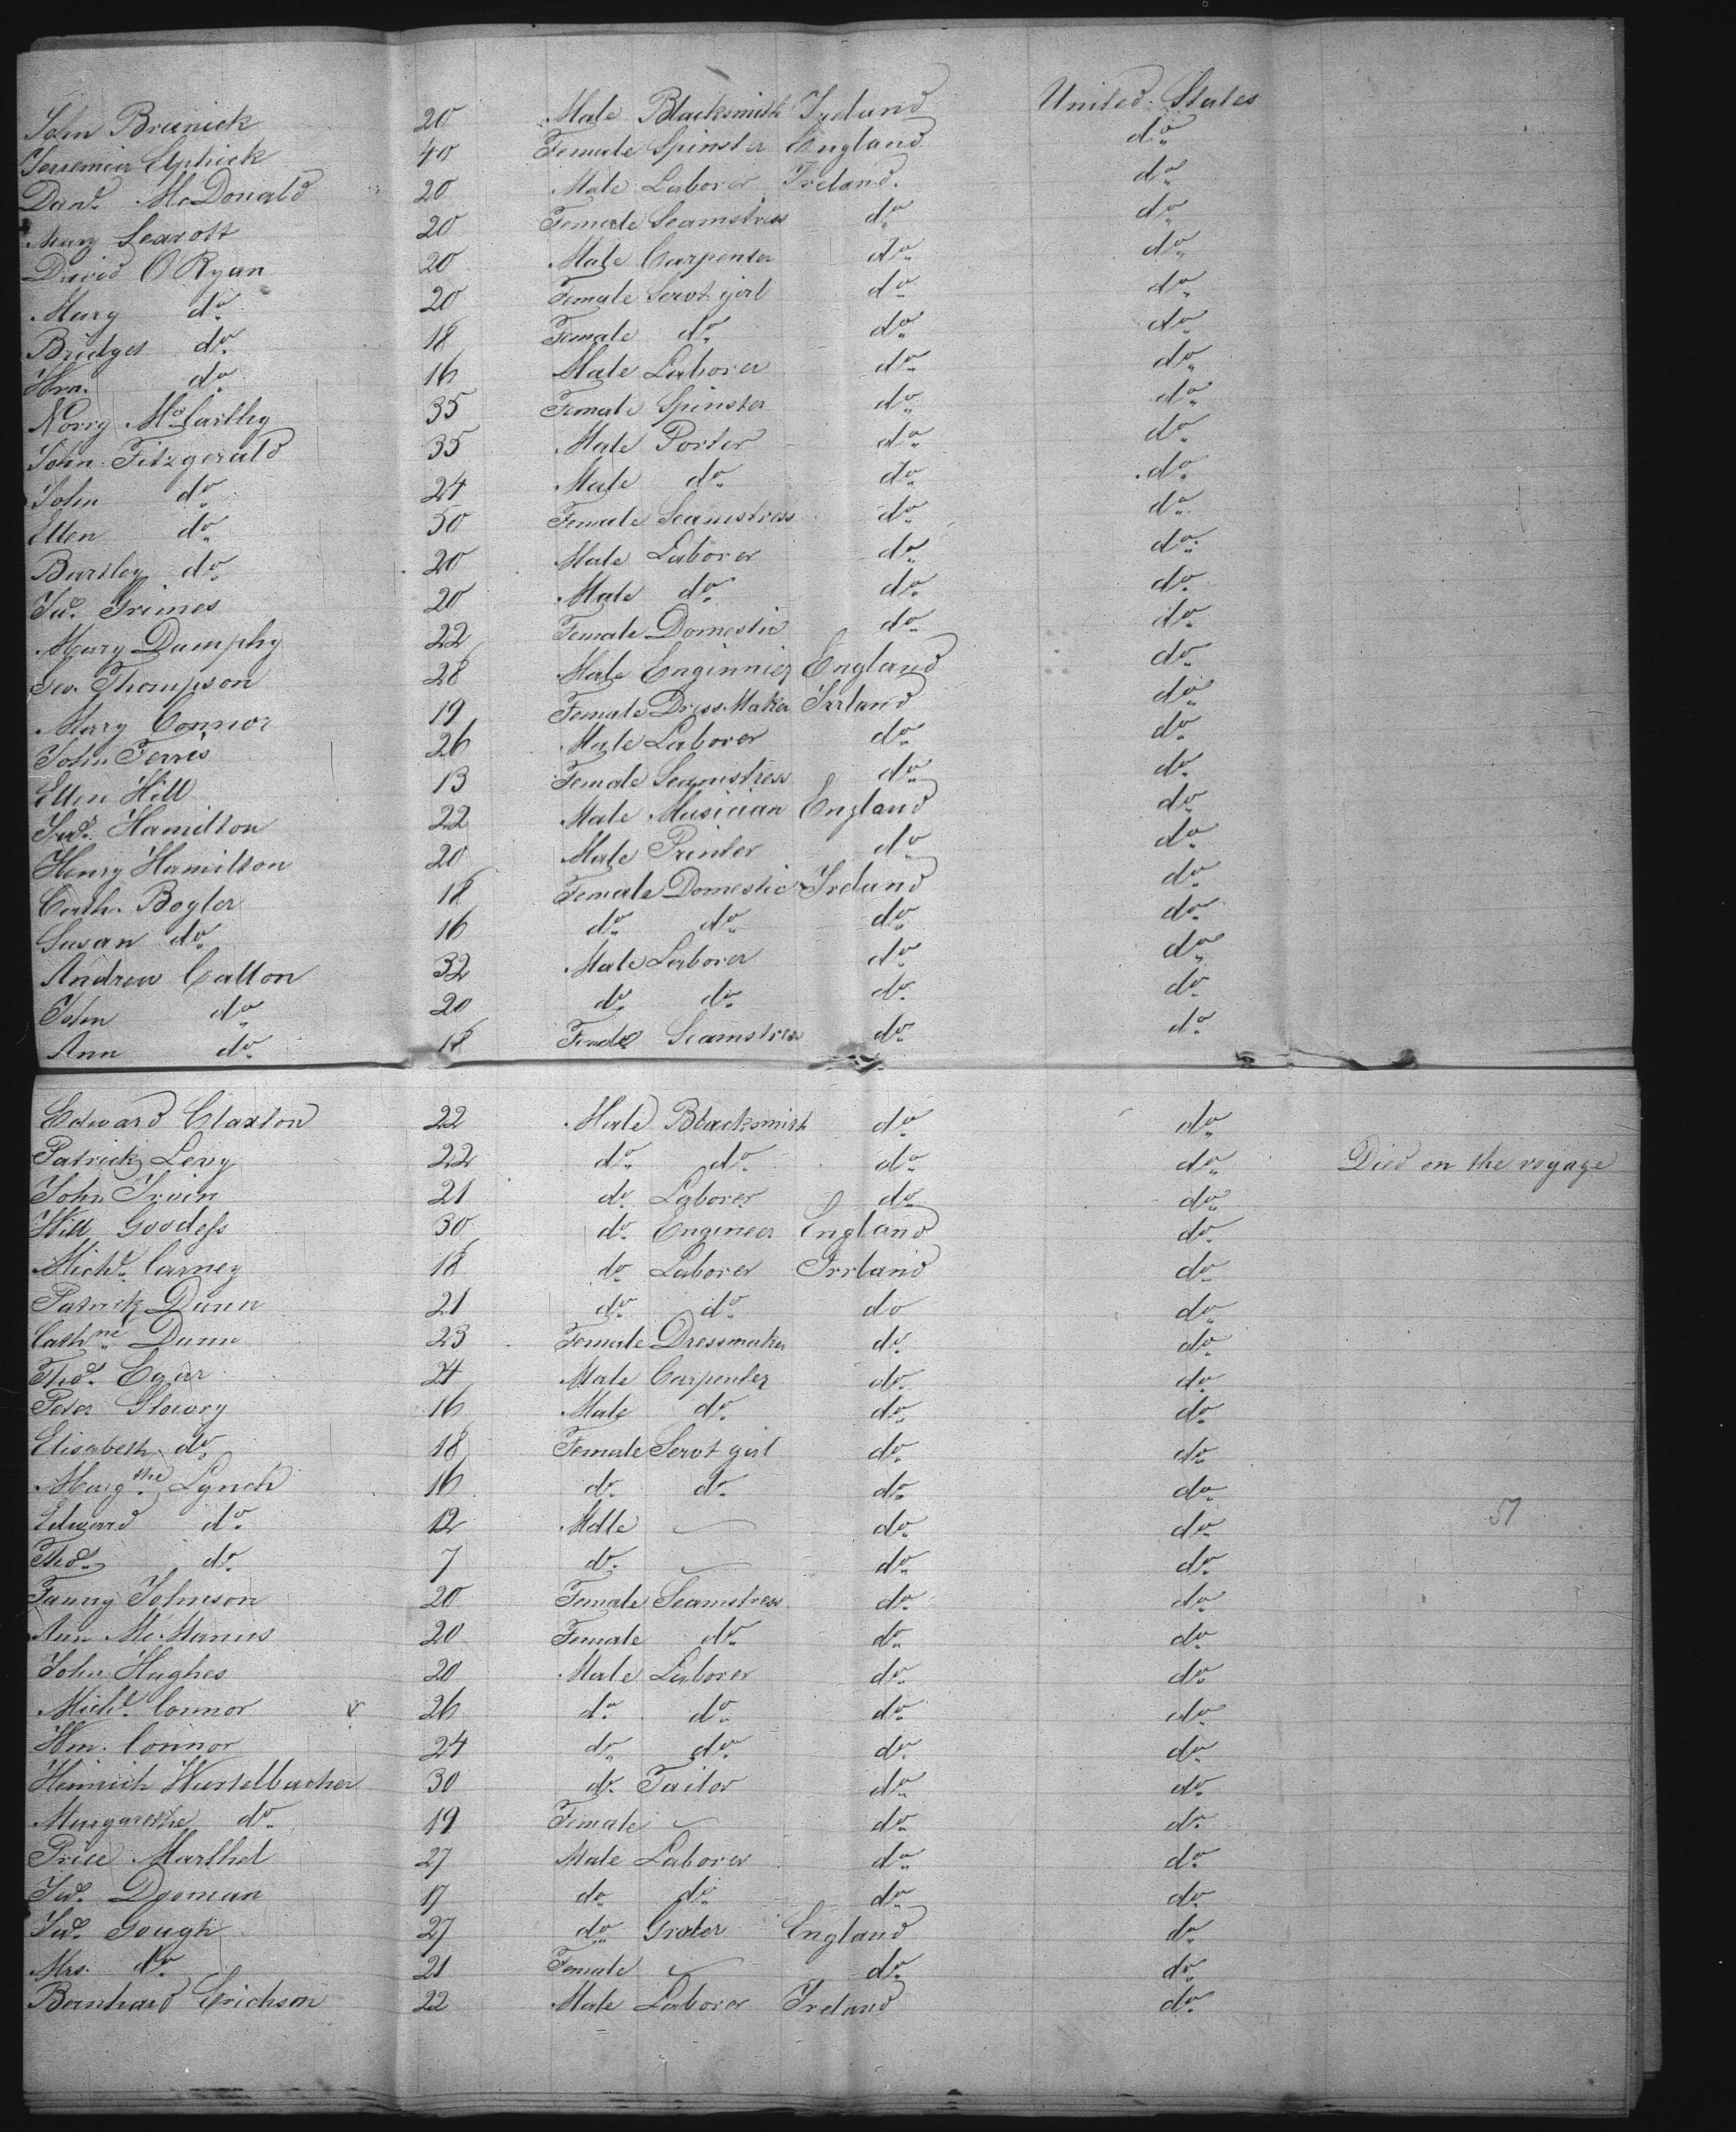 John Brunick 20 Male Blacksmith Ireland United States
40 Female Spinster England do
Dand. McDonald 20 Male Laborer Ireland. do
Mary Searott 20 Female Seamstress do do
David O Ryan 20 Male Carpenter do do
Mary do 20 Female Servt girl do do
Bridget do 18 Female do do do
Wm. do 16 Male Laborer do do
Norry McCarthy 35 Female Spinster do do
John Fitzgerald 35 Male Porter do do
John do 24 Male do do do
Ellen do 50 Female Seamstress do do
Bartley do 20 Male Laborer do do
Jas. Grimes 20 Male do do do
Mary Dumphy 22 Female Domestic do do
Geo. Thompson 28 Male Enginnier England do
Mary Connor 19 Female DressMaker Irrland do
John Ferris 26 Male Laborer do do
Ellen Hill 13 Female Seamstress do do
Jas. Hamilton 22 Male Musician England do
Henry Hamilton 20 Male Printer do do
Cath. Bogler 18 Female Domestic Ireland do
Susan do 16 do do do do
Andrew Calton 32 Male Laborer do do
John do 20 do do do do
Ann do 18 Female Seamstress do do
Edward Claxton 22 Male Blacksmith do do
Patrick Levy 22 do do do do Died on the voyage
John Irvin 21 do Laborer do do
Will Goodess 30 do Engineer England do
Michl. Carney 18 do Laborer Irrland do
Patrick Dunn 21 do do do do
Cathne Dunn 23 Female Dressmaker do do
Thos. Egar 24 Male Carpenter do do
Peter Glowry 16 Male do do do
Elisabeth do 18 Female Servt girl do do
Margthe Lynch 16 do do do do
Edward do 12 Male do do
Thos. do 7 do do do
Fanny Johnson 20 Female Seamstress do do
Ann McManus 20 Female do do do
John Hughes 20 Male Laborer do do
Michl. Connor 26 do do do do
Wm. Connor 24 do do do do
Heinrich Wurtelbacher 30 do Tailor do do
Margarethe do 19 Female do do
Price Marthel 27 Male Laborer do do
Jas. Dooman 17 do do do do
Jas. Gough 27 do Grocer England do
Mrs. do 21 Female do do
Bernhard Erichson 22 Male Laborer Ireland do
57